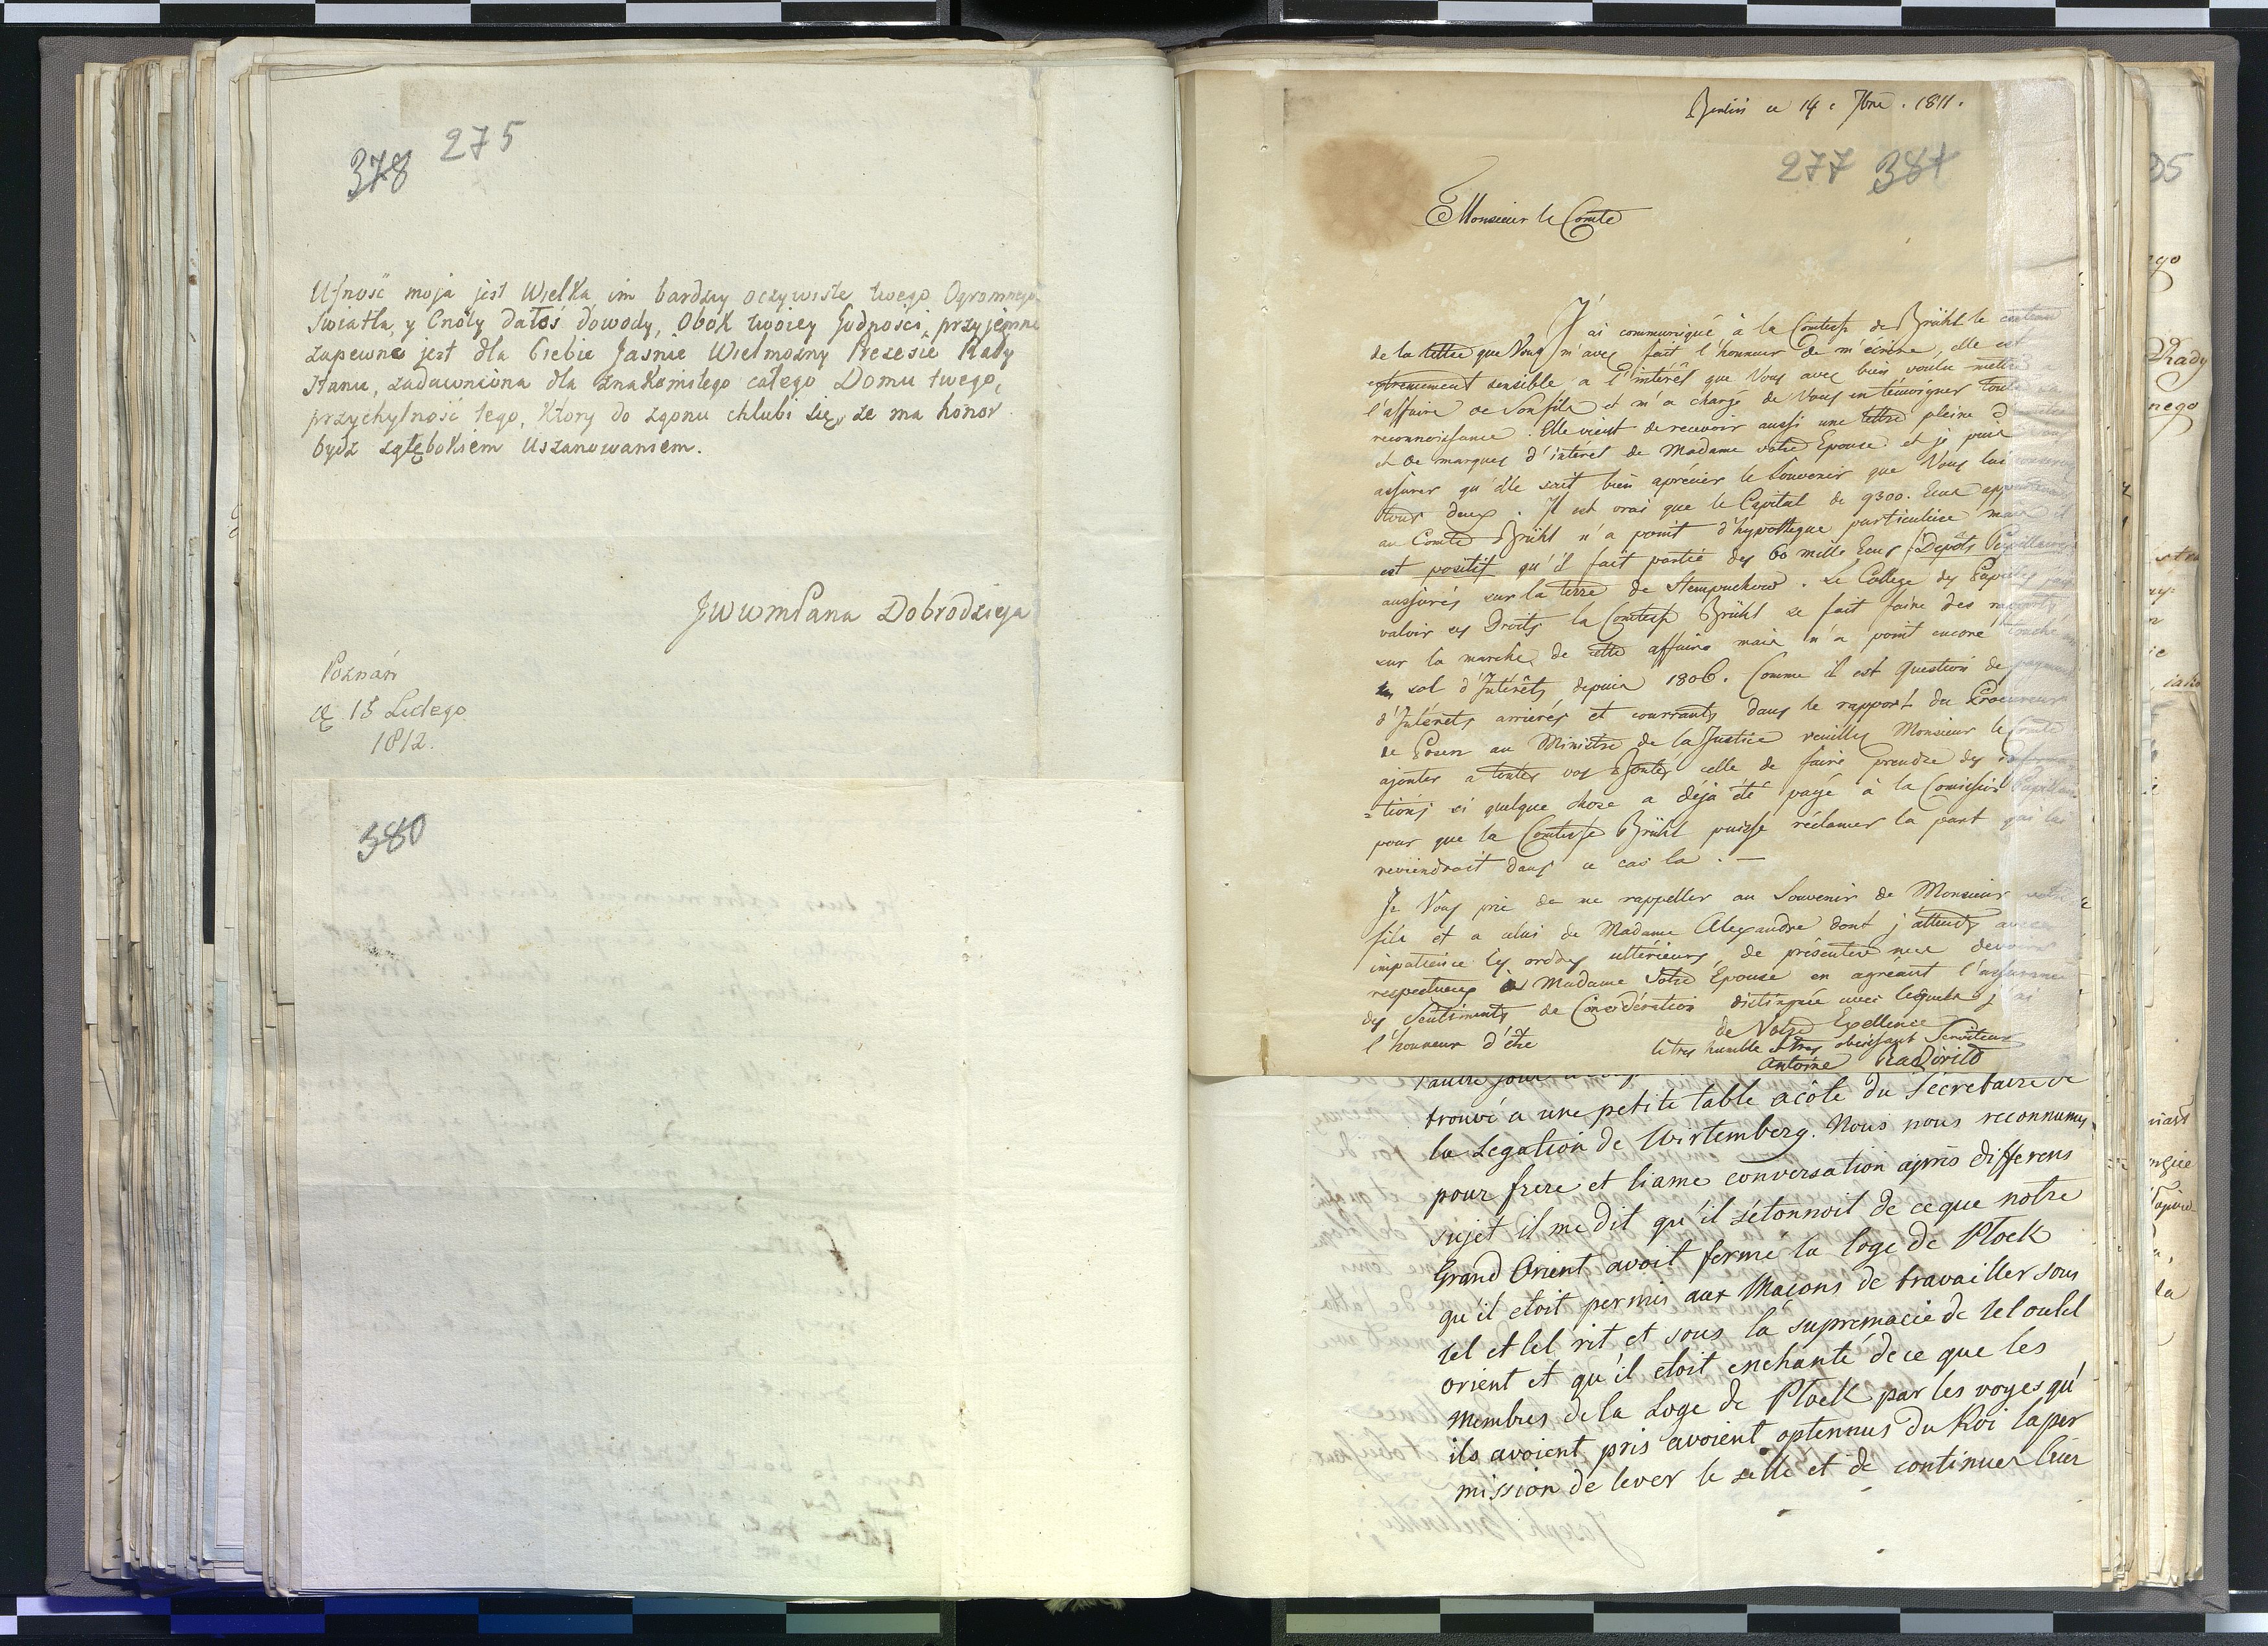 275
378
Ufność moja jest Wielka im bardziey oczywiste twego Ogromnego
Swiatła, y Cnoty dałeś dowody, Obok twoiey Godności, przyjemna
zapewne jest dla Ciebie Jasnie Wielmozny Prezesie Rady
Stanu, zadawniona dla znakomitego całego Domu twego,
przychylność tego, Ktory do zgonu chlubi się, ze ma honor
bydz zgłębokiem Uszanowaniem.
JWWmPana Dobrodzieja
Poznań
15 Lutego
1812.
380
Berlin ce 14 e 7bre. 1811.
277 381
Monsieur le Comte
J'ai communiqué à la Comtesse de Brühl le
de la lettre que Vous m'avez fait l'honneur de m'écrire, elle est
extremement sensible a l'intérêt que Vous avez bien voulu mettre a
l'affaire de Son fils et m'a chargé de Vous en témoigner toute sa
reconnoissance. Elle vient de recevoir aussi une lettre pleine
et de marques d'intérêt de Madame votre Epouse et je puis Vous
assurer qu'elle sait bien aprécier le Souvenir que Vous lui
tous deux. Il est vrai que le Capital de 9300. Ecus
au Comte Brühl n'a point d'hypotheque particuliere mais il
est positif qu'il fait partie des 60 mille Ecus (Depôts Pupillaires)
assurés sur la terre de Stempuchow. Le College des Pupilles
valoir ses Droits la Comtesse Brühl se fait faire des rapports
sur la marche de cette affaire mais n'a point encore touché
sol d'Intérêts depuis 1806. Comme il est Question de payement
d'Intérets arriérés et courrants dans le rapport du Procureur
de Posen au Ministre de la Justice veuillez Monsieur le Comte
ajouter a toutes vos Bontés celle de faire prendre des informa=
=tions si quelque chose a déja été payé à la Comission Pupillaire
pour que la Comtesse Brühl puisse réclamer la part qui lui
reviendrait dans ce cas la. —
Je Vous prie de me rappeller au Souvenir de Monsieur votre
fils et a celui de Madame Alexandre dont j'attends avec
impatience les ordres ultérieurs, de présenter mes devoirs
respectueux à Madame Votre Epouse en agréant l'assurance
des Sentiments de Considération distinguée avec lesquels j'ai
l'honneur d'être
de Votre Excellence
le tres humble et tres obéissant Serviteur
Antoine Radziwill
l'autre jour
trouvé a une petite table acôté du Sécretaire de
la Legation de Wirtemberg. Nous nous reconnumes
pour frere et liame conversation après differens
sujet il me dit qu'il s'étonnoit de ceque notre
Grand Orient avoit fermé la loge de Plock
qu'il etoit permis aux Maçons de travailler sous
tel et tel rit et sous la suprémacie de tel outel
orient et qu'il etoit enchanté dece que les
Membres de la Loge de Plock par les voyes qu'
ils avoient pris avoient optennus du Roi la per
mission de lever le sellé et de continuer leur